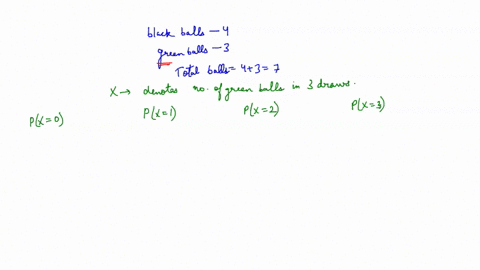 black balls — 4
green balls — 3
Total balls = 4+3 = 7
X → denotes no. of green balls in 3 draws.
P(X=0) P(X=1) P(X=2) P(X=3)